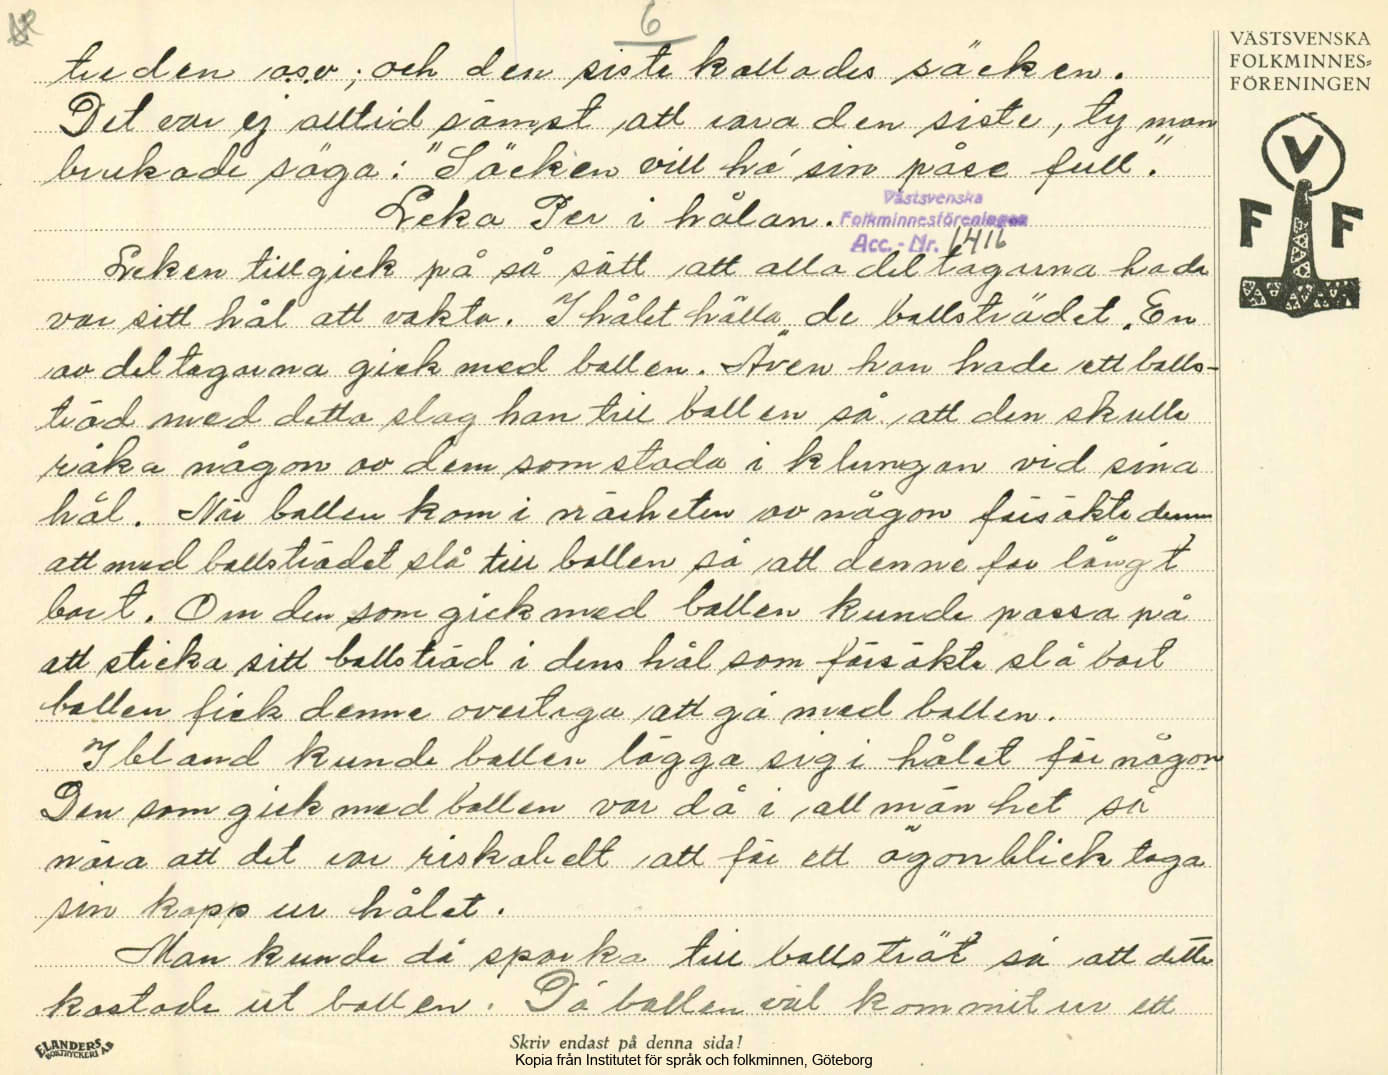 6
VÄSTSVENSKA
FOLKMINNES=
FÖRENINGEN
V
F F
treden o.s.v; och den siste kallades säcken.
Det var ej alltid sämst att vara den siste, ty man
brukade säga: "Säcken vill ha' sin påse full".
Leka Per i hålan.
Västsvenska
Folkminnesföreningen
Acc.-Nr. 1416
Leken tillgick på så sätt att alla deltagarna hade
var sitt hål att vakta. I hålet hålla de bollsträdet. En
av deltagarna gick med bollen. Även han hade ett bolls-
träd med detta slag han till bollen så att den skulle
råka någon av dem som stodo i klungan vid sina
hål. När bollen kom i närheten av någon försökte denne
att med bollsträdet slå till bollen så att denne for långt
bort. Om den som gick med bollen kunde passa på
att sticka sitt bollsträd i dens hål som försökte slå bort
bollen fick denne övertaga att gå med bollen.
Ibland kunde bollen lägga sig i hålet för någon
Den som gick med bollen var då i allmänhet så
nära att det var riskabelt att för ett ögonblick taga
sin käpp ur hålet.
Man kunde då sparka till bollsträt så att detta
kastade ut bollen. Då bollen väl kommit ur ett
ELANDERS
BOKTRYCKERI AB
Skriv endast på denna sida!
Kopia från Institutet för språk och folkminnen, Göteborg